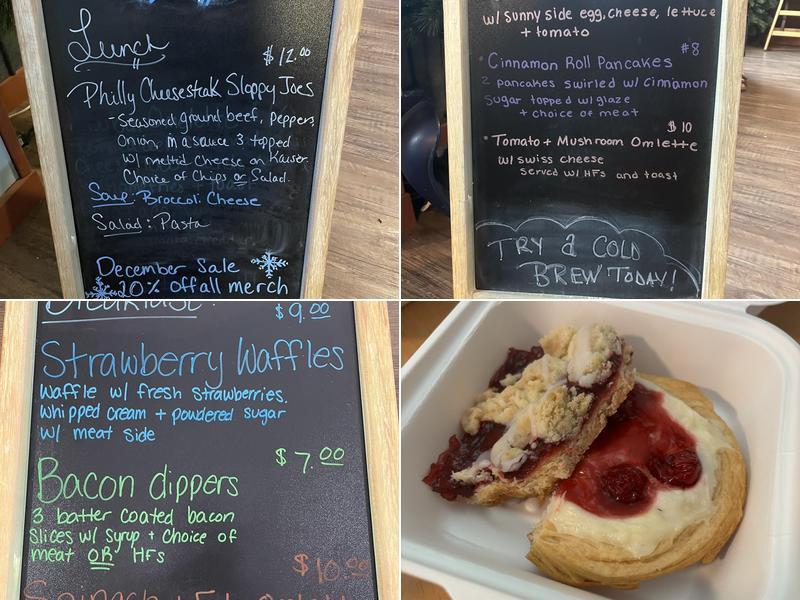 Lunch
$12.00
Philly Cheesesteak Sloppy Joes
- Seasoned ground beef, Peppers,
Onion, in a sauce 3 topped
w/ melted Cheese on Kaiser.
Choice of Chips or Salad.
Soup: Broccoli Cheese
Salad: Pasta
December Sale
20% off all merch
w/ sunny side egg, cheese, lettuce
+ tomato
#8
• Cinnamon Roll Pancakes
2 pancakes swirled w/ cinnamon
Sugar topped w/ glaze
+ choice of meat
$10
• Tomato + Mushroom Omlette
w/ swiss cheese
Served w/ HFs and toast
TRY A COLD
BREW TODAY!
Breakfast:
$9.00
Strawberry Waffles
Waffle w/ fresh strawberries,
whipped cream + powdered sugar
w/ meat side
$7.00
Bacon dippers
3 batter coated bacon
slices w/ syrup + choice of
meat OR HFs
$10.00